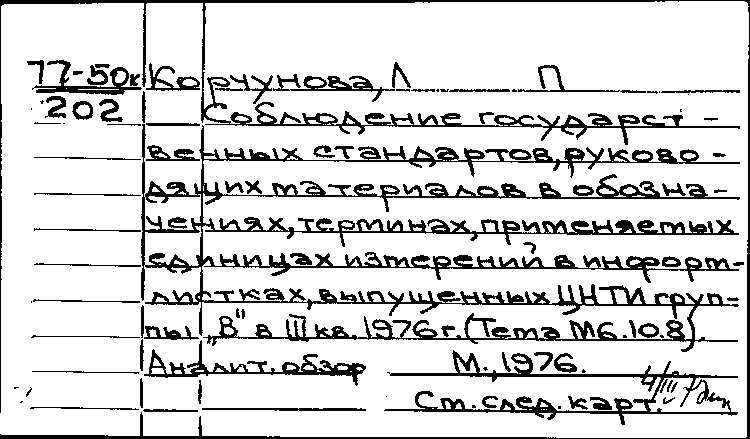 77-50к Корчунова, Л П
202 Соблюдение государст-
венных стандартов, руково-
дящих материалов в обозна-
чениях, терминах, применяемых
единицах измерений в информ-
листках, выпущенных ЦНТИ груп-
пы „В" в III кв. 1976 г. (Тема М6.10.8).
Аналит. обзор М., 1976.
Ст. след. карт.